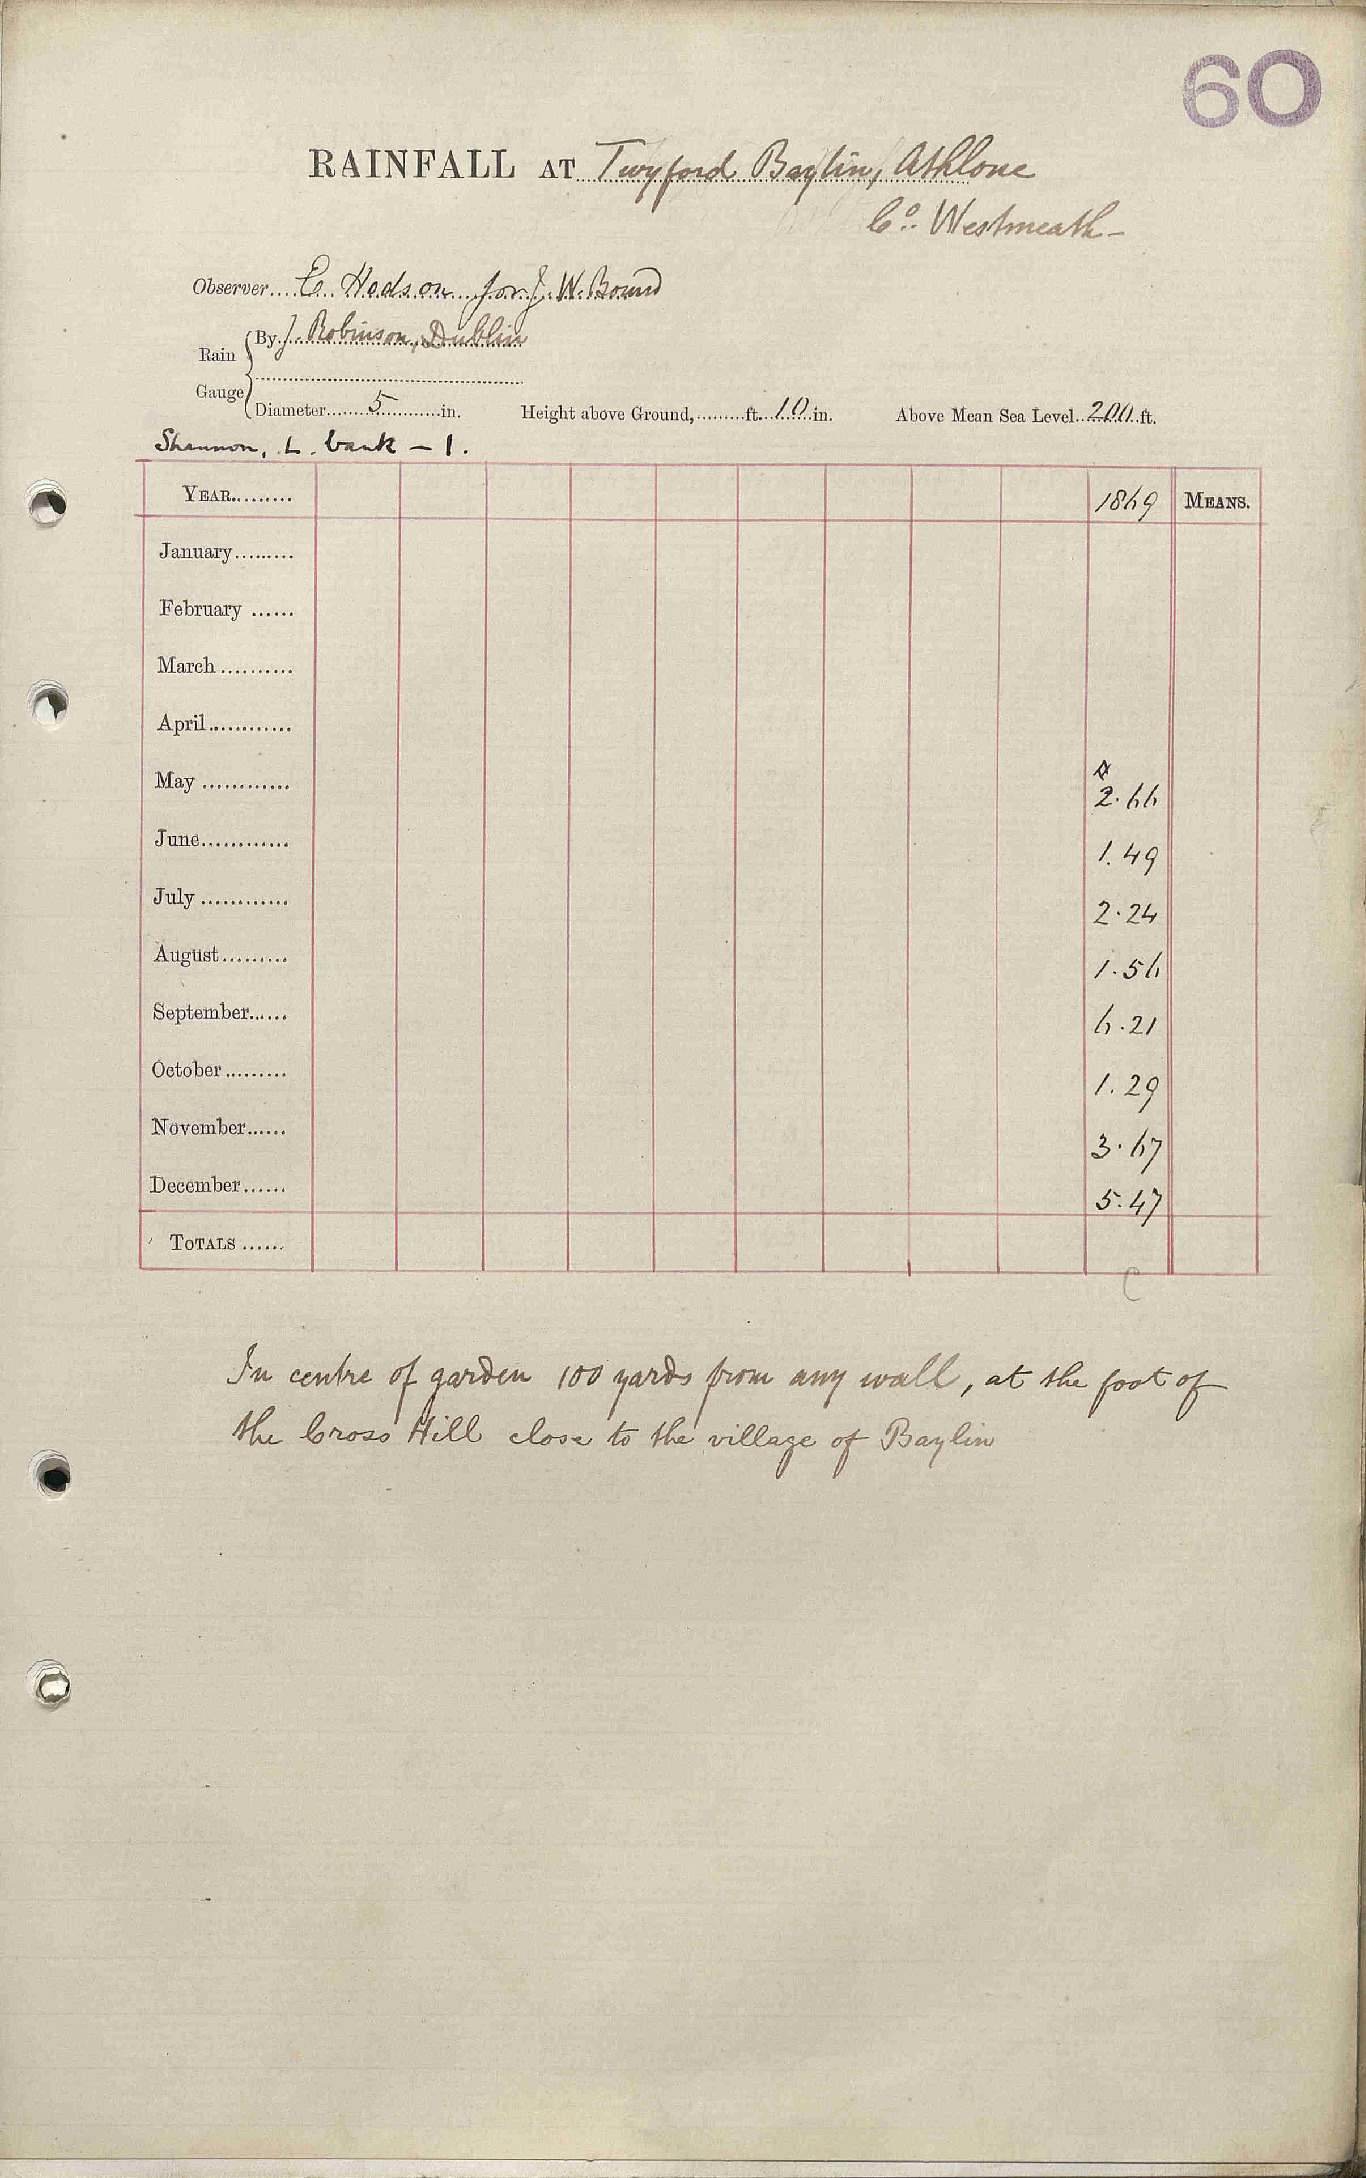 60
RAINFALL AT Twyford Baylin, Athlone
Co. Westmeath
Observer.... E. Hodson for J. W. Bound
Rain Gauge { By J. Robinson, Dublin
Diameter 5 in. Height above Ground, ft. 10 in. Above Mean Sea Level 200 ft.
Shannon, L. bank – 1.
YEAR 1869 MEANS.
January
February
March
April
May 2.66
June 1.49
July 2.24
August 1.56
September 6.21
October 1.29
November 3.67
December 5.47
TOTALS
C
In centre of garden 100 yards from any wall, at the foot of
the Cross Hill close to the village of Baylin